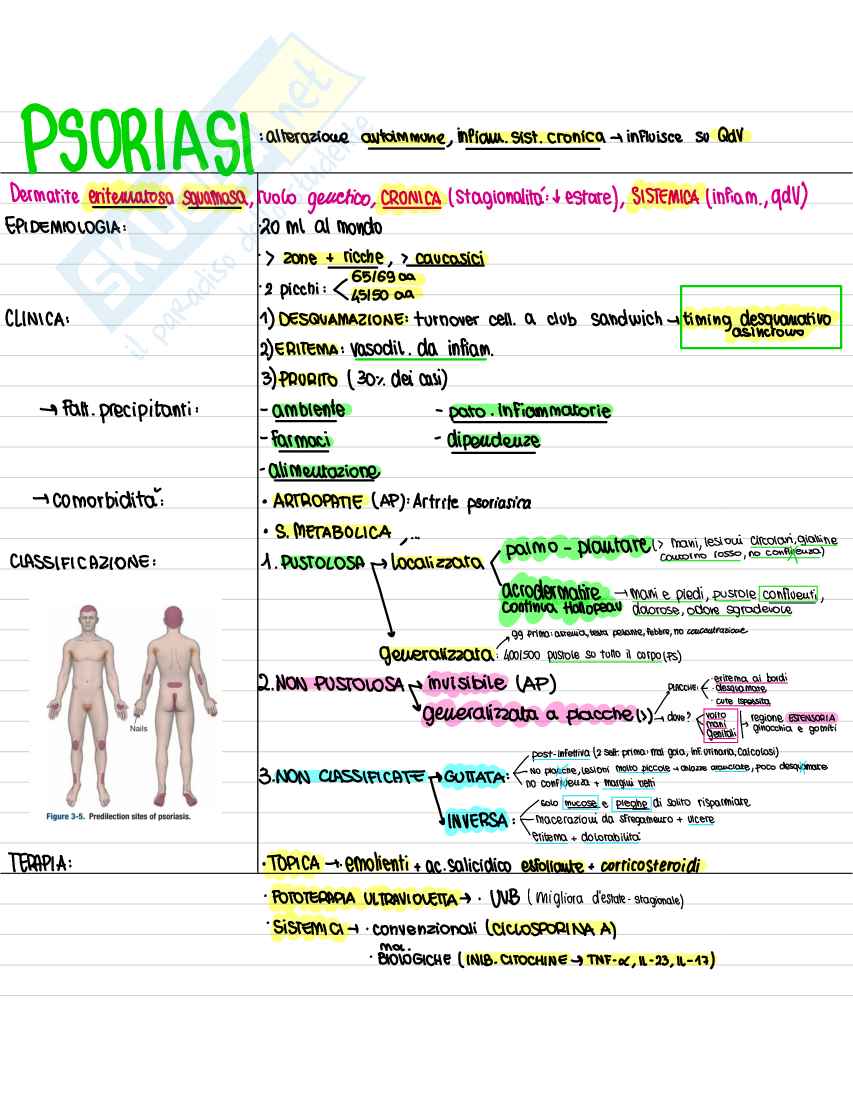 PSORIASI : alterazione autoimmune, infiam. sist. cronica → influisce su QdV
Dermatite eritematosa squamosa, ruolo genetico, CRONICA (stagionalità: ↓ estate), SISTEMICA (infiam., qdV)
EPIDEMIOLOGIA: · 20 ml al mondo
· > zone + ricche, > caucasici
· 2 picchi: < 65/69 aa
45/50 aa
CLINICA: 1) DESQUAMAZIONE: turnover cell. a club sandwich → timing desquamativo
asincrono
2) ERITEMA: vasodil. da infiam.
3) PRURITO (30% dei casi)
→ Fatt. precipitanti: - ambiente - pato. infiammatorie
- farmaci - dipendenze
- alimentazione
→ comorbidità: · ARTROPATIE (AP): Artrite psoriasica
· S. METABOLICA, ...
CLASSIFICAZIONE: 1. PUSTOLOSA → localizzata palmo - plantare (> mani, lesioni circolari, gialline
contorno rosso, no confluenza)
acrodermatite → mani e piedi, pustole confluenti,
continua Hallopeau dolorose, odore sgradevole
→ gg prima: astenia, testa pesante, febbre, no concentrazione
generalizzata: 400/500 pustole su tutto il corpo (PS)
2. NON PUSTOLOSA → invisibile (AP)
generalizzata a placche (>) → PLACCHE: · eritema ai bordi
· desquamate
· cute ispessita
→ dove? volto
mani
genitali
→ regione ESTENSORIA
ginocchia e gomiti
Nails
Figure 3-5. Predilection sites of psoriasis.
3. NON CLASSIFICATE → GUTTATA: post-infettiva (2 sett. prima: mal gola, inf. urinaria, calcolosi)
No placche, lesioni molto piccole → chiazze aranciate, poco desquamate
no confluenza + margini netti
INVERSA: solo mucose e pieghe di solito risparmiate
macerazioni da sfregamento + ulcere
eritema + dolorabilità
TERAPIA: · TOPICA → · emolienti + ac. salicidico esfoliante + corticosteroidi
· FOTOTERAPIA ULTRAVIOLETTA → · UVB (migliora d'estate - stagionale)
· SISTEMICI → · convenzionali (CICLOSPORINA A)
mol.
· BIOLOGICHE (INIB. CITOCHINE → TNF-α, IL-23, IL-17)
il paradiso dello studente